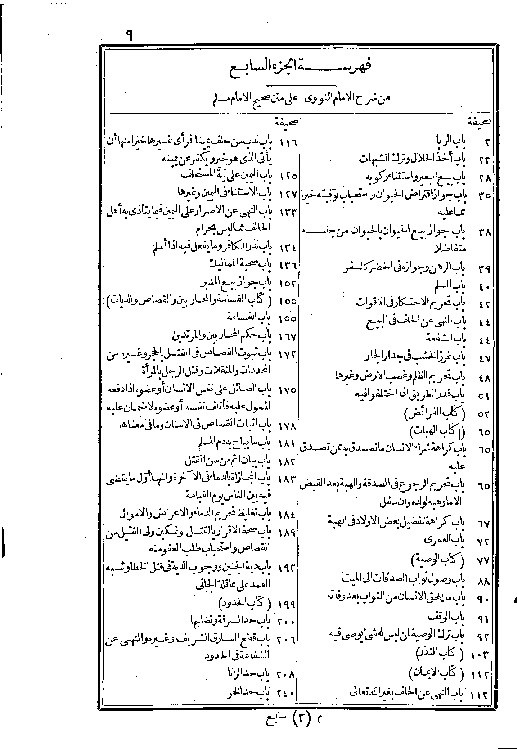 ٩
فهرســــة الجزء السابع
من شرح الامام النووى على متن صحيح الامام مسلم
صحيفة
٢ باب الربا
٢٣ باب أخذ الحلال وترك الشبهات
٢٨ باب بيع البعير واستثناء ركوبه
٣٥ باب جواز اقتراض الحيوان واستحباب توفيته خيرا
مما عليه
٣٨ باب جواز بيع الحيوان بالحيوان من جنسه
متفاضلا
٣٩ باب الرهن وجوازه فى الحضر كالسفر
٤٠ باب السلم
٤٢ باب تحريم الاحتكار فى الاقوات
٤٤ باب النهى عن الحلف فى البيع
٤٤ باب الشفعة
٤٧ باب غرز الخشب فى جدار الجار
٤٨ باب تحريم الظلم وغصب الارض وغيرها
٥١ باب قدر الطريق اذا اختلفوا فيه
٥٢ (كتاب الفرائض)
٦٥ (كتاب الهبات)
٦٥ باب كراهة شراء الانسان ما تصدق به ممن تصدق
عليه
٦٥ باب تحريم الرجوع فى الصدقة والهبة بعد القبض
الا ما وهبه لولده وان سفل
٦٧ باب كراهة تفضيل بعض الاولاد فى الهبة
٧٢ باب العمرى
٧٧ (كتاب الوصية)
٨٨ باب وصول ثواب الصدقات الى الميت
٩٠ باب ما يلحق الانسان من الثواب بعد وفاته
٩١ باب الوقف
٩٢ باب ترك الوصية لمن ليس له شئ يوصى فيه
١٠٣ (كتاب النذر)
١١٢ (كتاب الايمان)
١١٢ باب النهى عن الحلف بغير الله تعالى
صحيفة
١١٦ باب ندب من حلف يمينا فرأى غيرها خيرا منها أن
يأتى الذى هو خير ويكفر عن يمينه
١٢٥ باب اليمين على نية المستحلف
١٢٧ باب الاستثناء فى اليمين وغيرها
١٣٣ باب النهى عن الاصرار على اليمين فيما يتأذى به أهل
الحالف مما ليس بحرام
١٣٤ باب نذر الكافر وما يفعل فيه اذا أسلم
١٣٦ باب صحبة المماليك
١٥٢ باب جواز بيع المدبر
١٥٥ (كتاب القسامة والمحاربين والقصاص والديات)
١٥٥ باب القسامة
١٦٧ باب حكم المحاربين والمرتدين
١٧٢ باب ثبوت القصاص فى القتل بالحجر وغيره من
المحددات والمثقلات وقتل الرجل بالمرأة
١٧٥ باب الصائل على نفس الانسان أو عضوه اذا دفعه
المصول عليه فأتلف نفسه أو عضوه لا ضمان عليه
١٧٨ باب اثبات القصاص فى الاسنان وما فى معناها
١٨١ باب ما يباح به دم المسلم
١٨٢ باب بيان اثم من سن القتل
١٨٣ باب المجازاة بالدماء فى الآخرة وانها أول ما يقضى
فيه بين الناس يوم القيامة
١٨٤ باب تغليظ تحريم الدماء والاعراض والاموال
١٨٩ باب صحة الاقرار بالقتل وتمكين ولى القتيل من
القصاص واستحباب طلب العفو منه
١٩٣ باب دية الجنين ووجوب الدية فى قتل الخطا وشبه
العمد على عاقلة الجانى
١٩٩ (كتاب الحدود)
٢٠٠ باب حد السرقة ونصابها
٢٠٦ باب قطع السارق الشريف وغيره والنهى عن
الشفاعة فى الحدود
٢٠٨ باب حد الزنا
٢٤٠ باب حد الخمر
٢ (٢) سابع